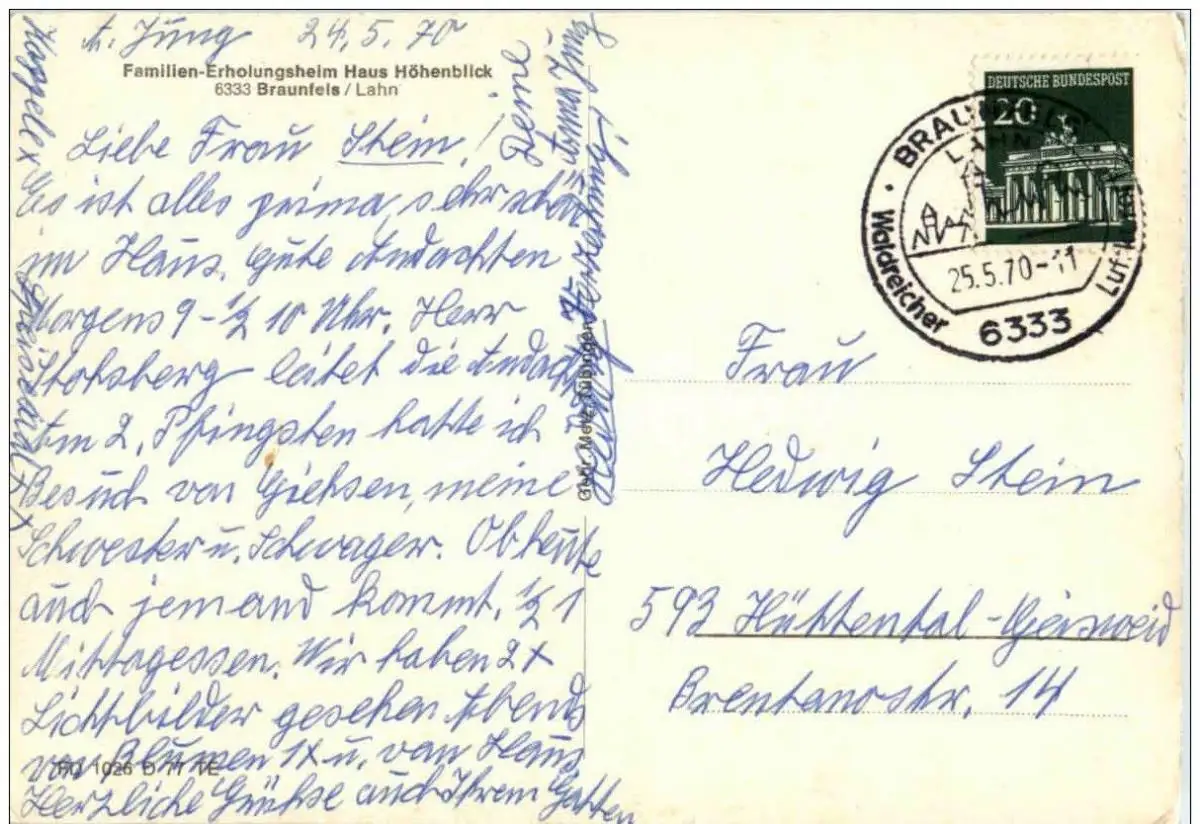 A. Jung 24.5.70
Familien-Erholungsheim Haus Höhenblick
6333 Braunfels / Lahn
Liebe Frau Stein!
Es ist alles prima, sehr schön
im Haus, gute Andachten
Morgens 9 - ½ 10 Uhr. Herr
Stotsberg leitet die Andacht
Am 2. Pfingsten hatte ich
Besuch von Giehsen, meine
Schwester u. Schwager. Ob heute
auch jemand kommt. ½ 1
Mittagessen. Wir haben 2x
Lichtbilder gesehen Abends
von Blumen 1x u. von Haus
Herzliche Grühse auch Ihrem Gatten
Deine
Anna Jung
RU 1026 D
Gebr. Metz, Tübingen
DEUTSCHE BUNDESPOST
20
BRAUNFELS
LAHN
Waldreicher
Luft
25.5.70-11
6333
Frau
Hedwig Stein
593 Hüttental-Geisweid
Brentanostr. 14